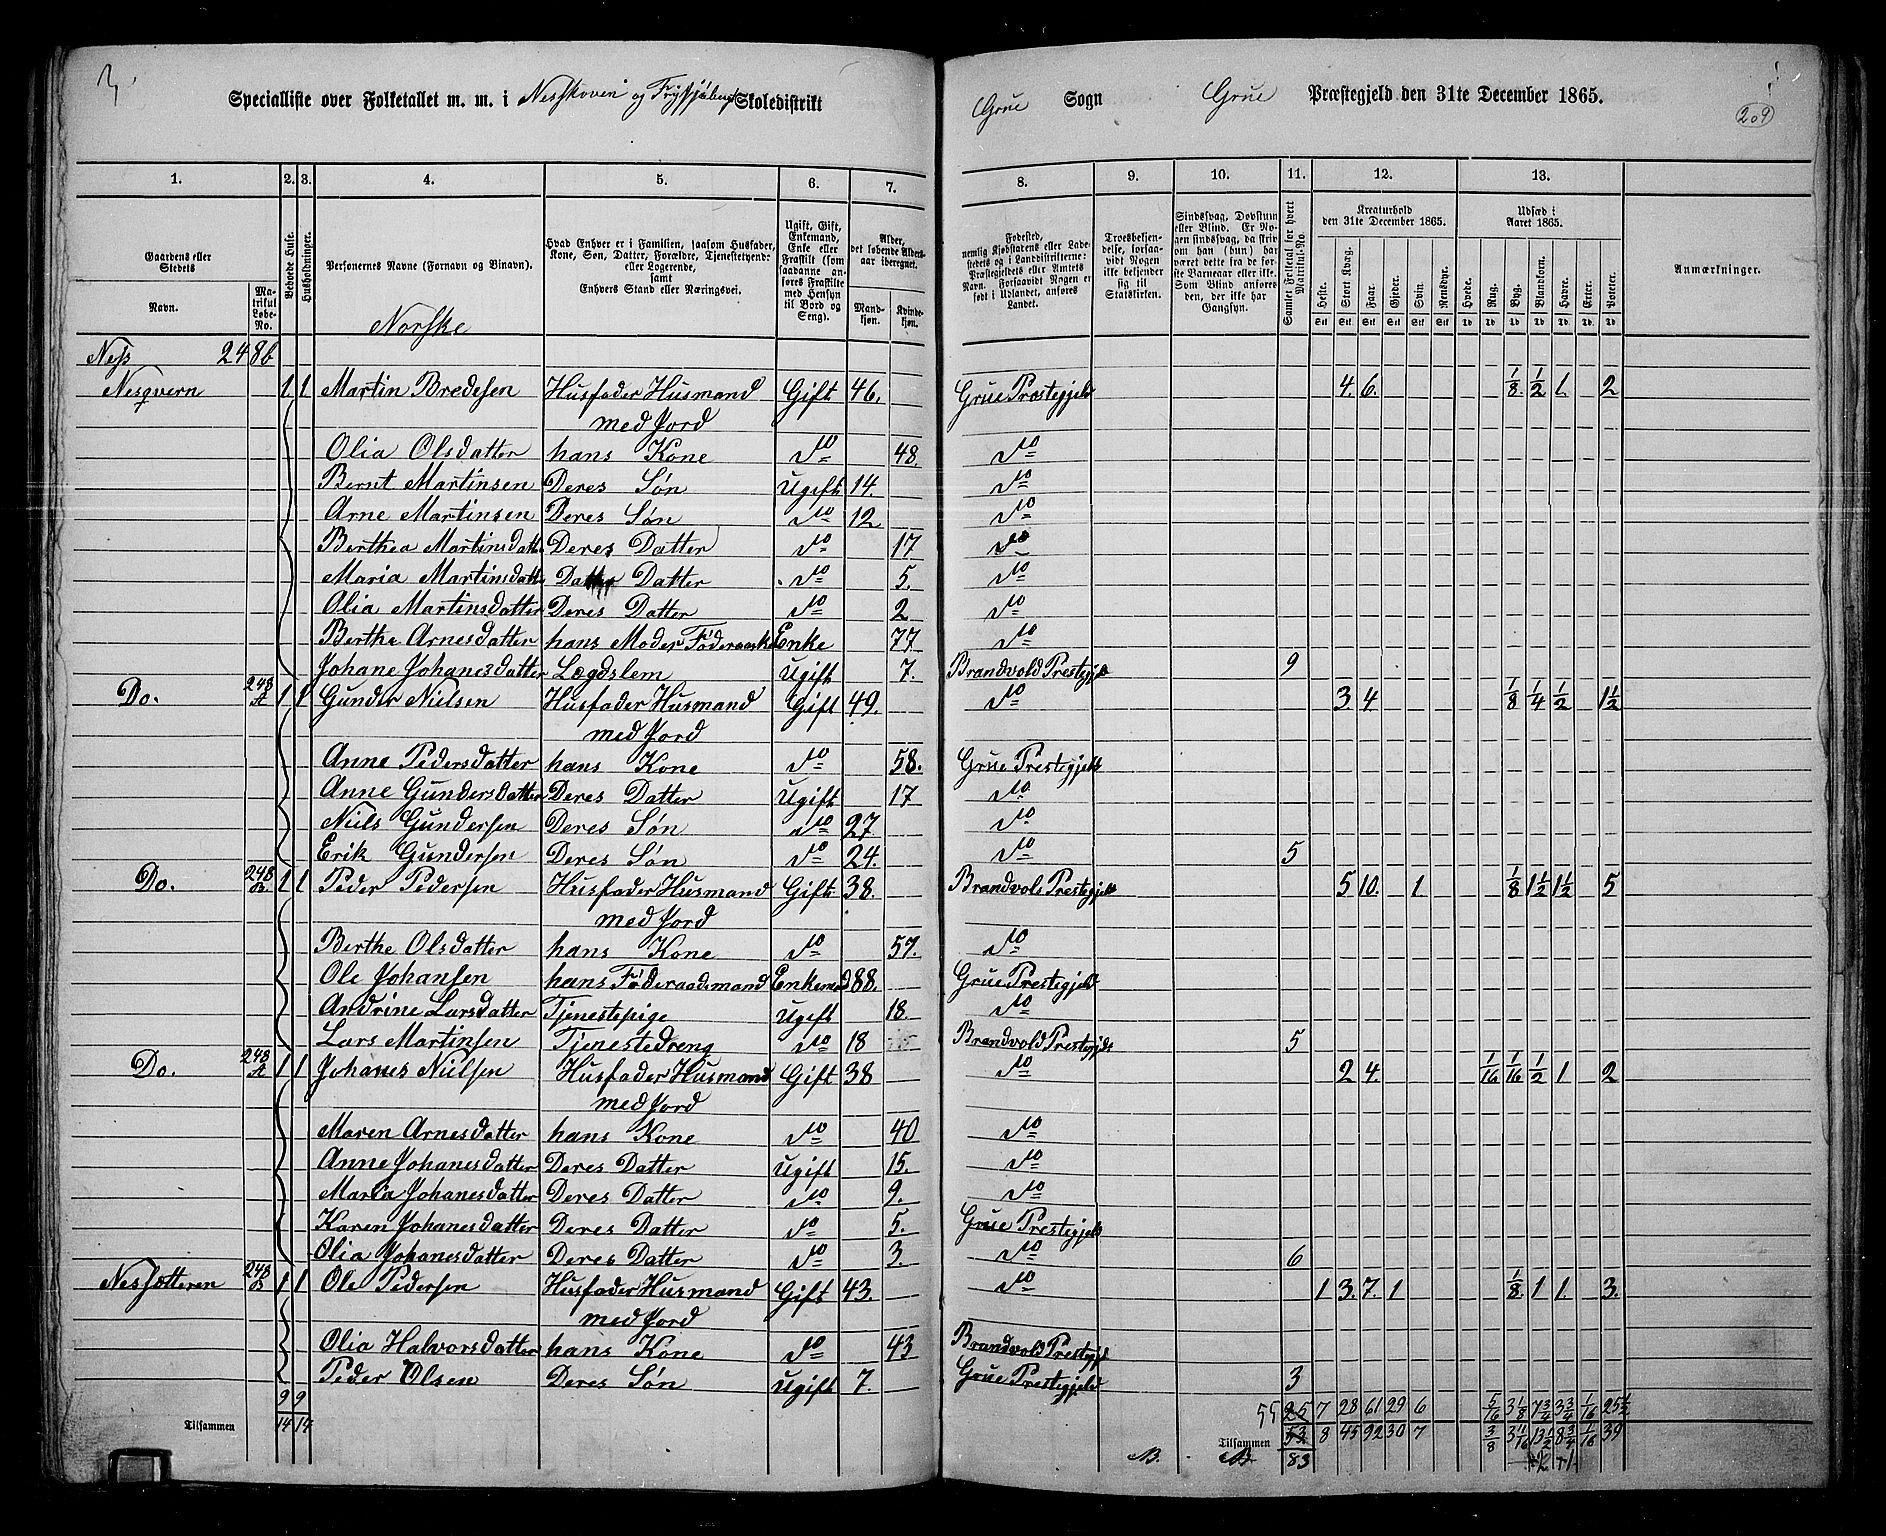 Specialliste over Folketallet m. m. i Nesskoven og Skoledistrikt Grue Sogn Grue Præstegjeld den 31te December 1865.
209
1. 2. 3. 4. 5. 6. 7. 8. 9. 10. 11. 12. 13.
Gaardens eller Stedets
Navn.
Matrikul Løbe-No.
Beboede Huse.
Husholdninger.
Personernes Navne (Fornavn og Binavn).
Hvad Enhver er i Familien, saasom Husfader, Kone, Søn, Datter, Forældre, Tjenestetyende eller Logerende, samt Enhvers Stand eller Næringsvei.
Ugift, Gift, Enkemand, Enke eller Fraskilt (som saadanne anføres Fraskilte med Hensyn til Bord og Seng).
Alder, det løbende Aldersaar iberegnet.
Mandkjøn. Kvindekjøn.
Fødested, nemlig Kjøbstadens eller Ladestedets eller i Landdistrikterne: Præstegjeldets eller Amtets Navn. Forsaavidt Nogen er født i Udlandet, anføres Landet.
Troesbekjendelse, forsaavidt Nogen ikke bekjender sig til Statskirken.
Sindssvag, Døvstum eller Blind. Er Nogen sindssvag, da skriv om han (hun) har været dette fra de første Barneaar eller ikke. Som Blind anføres den, der ikke har Gangsyn.
Samlet Folketal for hvert Matrikul-No.
Kreaturhold den 31te December 1865.
Heste. Stort Kvæg. Faar. Gjeder. Svin. Rensdyr.
Udsæd i Aaret 1865.
Hvede. Rug. Byg. Blandkorn. Havre. Erter. Poteter.
Anmærkninger.
Norske
Ness 248b
Nesqvern 1 1 Martin Bredesen Husfader Husmand Gift 46. Grue Prestegjeld 4. 6. 1/8. 1/2 1. 2
med Jord
Olia Olsdatter hans Kone do 48. do
Bernt Martinsen Deres Søn Ugift 14. do
Arne Martinsen Deres Søn do 12 do
Berthea Martinsdatte Deres Datter do 17 do
Maria Martinsdatt Datter do 5. do
Olia Martinsdatter Deres Datter do 2 do
Berthe Arnesdatter hans Moder Enke 77. do
Johane Johanesdatter Lægdslem Ugift 7. Brandvold Prestegjeld 9
Do. 248 A 1 1 Gunder Nielsen Husfader Husmand Gift 49. do 3 4 1/8 1/4 1/2 1 1/2
med Jord
Anne Pedersdatter hans Kone do 58. Grue Prestegjeld
Anne Gundersdatter Deres Datter Ugift 17 do
Niels Gundersen Deres Søn do 27 do
Erik Gundersen Deres Søn do 24. do 5
Do. 248 B 1 1 Peder Pedersen Husfader Husmand Gift 38. Brandvold Prestegjeld 5 10. 1 1/8 1 1/2 1 1/2 5
med Jord
Berthe Olsdatter hans Kone do 57. do
Ole Johansen hans Föderaadsmand Enkemd 88. Grue Prestegjeld
Andrine Larsdatter Tjenestepige Ugift 18. do
Lars Martinsen Tjenestedreng do 18 Brandvold Prestegjeld 5
Do. 248 A 1 1 Johanes Nielsen Husfader Husmand Gift 38 do 2 4. 1/16 1/16 1/2 1 2
med Jord
Maren Arnesdatter hans Kone do 40 do
Anne Johanesdatter Deres Datter Ugift 15. do
Maria Johanesdatter Deres Datter do 9. do
Karen Johanesdatter Deres Datter do 5. Grue Prestegjeld
Olia Johanesdatter Deres Datter do 3. do 6
Nessætteren 248 B 1 1 Ole Pedersen Husfader Husmand Gift 43. do 1 3. 7. 1 1/8. 1 1. 3.
med Jord
Olia Halvorsdatter hans Kone do 43 Brandvold Prestegj
Peder Olsen Deres Søn Ugift 7. Grue Prestegjeld 3
9 9 55 25 7 28 61 29 6 5/16 3 1/8 7 3/4 3 3/4 1/16 25 1/2
Tilsammen 14 14 Tilsammen 53 8 45 92 30 7 3/8 3 11/16 13 1/2 8 3/4 1/16 39
83